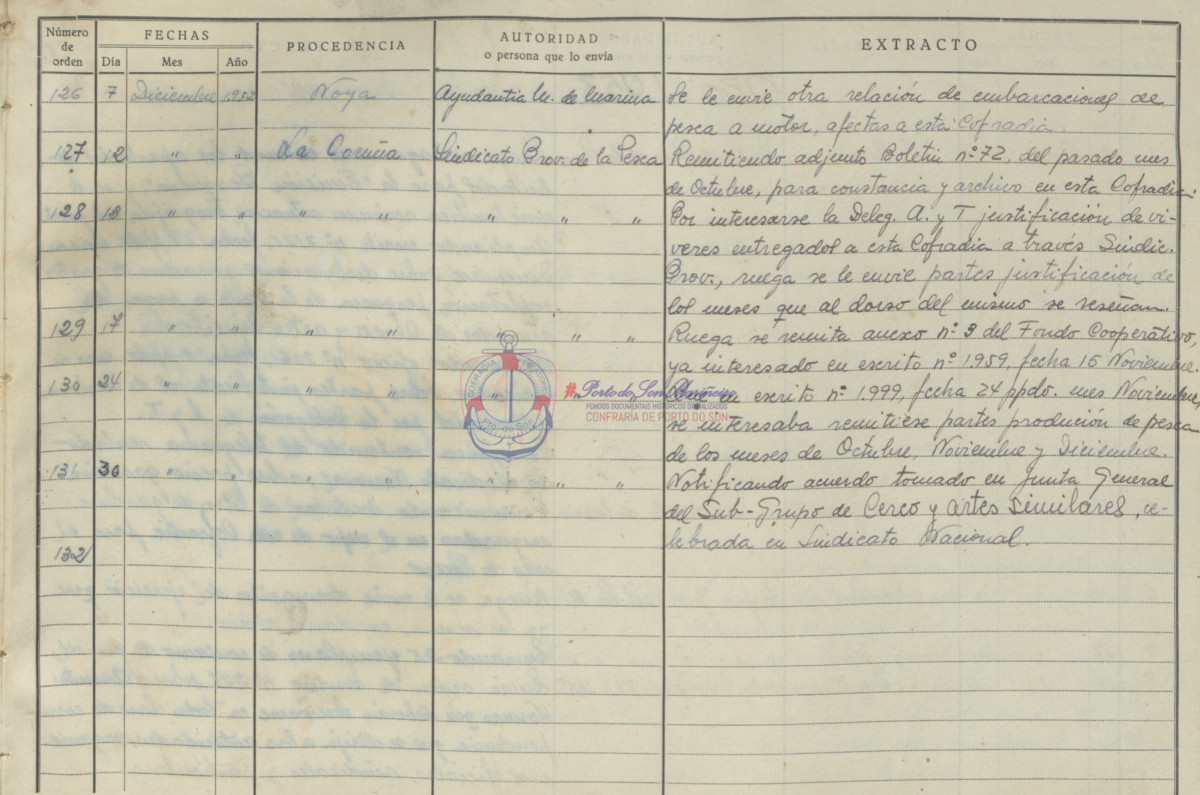 Número de orden | FECHAS | PROCEDENCIA | AUTORIDAD o persona que lo envía | EXTRACTO
Día | Mes | Año
126 7 Diciembre 1952 Noya Ayudantia M. de Marina Se le envie otra relación de embarcaciones de
pesca a motor, afectas a esta Cofradia.
127 12 " " La Coruña Sindicato Prov. de la Pesca Remitiendo adjunto Boletin nº 72, del pasado mes
de Octubre, para constancia y archivo en esta Cofradia.
128 13 " " " " " " " Por interesarse la Deleg. A. y T justificación de vi-
veres entregados a esta Cofradia a través Sindic.
Prov., ruega se le envie partes justificación de
los meses que al dorso del mismo se reseñan.
129 17 " " " " " " " Ruega se remita anexo nº 3 del Fondo Cooperativo,
ya interesado en escrito nº 1.959, fecha 15 Noviembre.
130 24 " " " " " en escrito nº 1.999, fecha 24 ppdo. mes Noviembre,
se interesaba remitiese partes produción de pesca
de los meses de Octubre, Noviembre y Diciembre.
131 30 " " " " " " " Notificando acuerdo tomado en Junta General
del Sub-Grupo de Cerco y artes similares, ce-
lebrada en Sindicato Nacional.
132
COFRADIA
Pto. do Son
#Porto do Son Mariñeiro
FONDOS DOCUMENTAIS HISTÓRICOS DIXITALIZADOS
CONFRARÍA DE PORTO DO SON